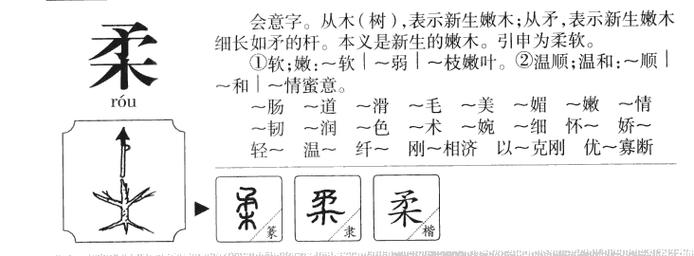 柔
róu
会意字。从木(树),表示新生嫩木;从矛,表示新生嫩木
细长如矛的杆。本义是新生的嫩木。引申为柔软。
①软;嫩:～软｜～弱｜～枝嫩叶。②温顺;温和:～顺｜
～和｜～情蜜意。
～肠 ～道 ～滑 ～毛 ～美 ～媚 ～嫩 ～情
～韧 ～润 ～色 ～术 ～婉 ～细 怀～ 娇～
轻～ 温～ 纤～ 刚～相济 以～克刚 优～寡断
柔 篆 柔 隶 柔 楷